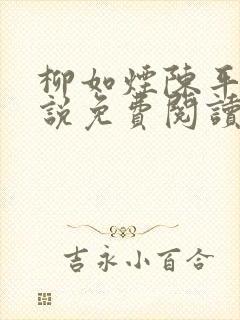 柳如煙陳平
說免費閱讀
吉永小百合